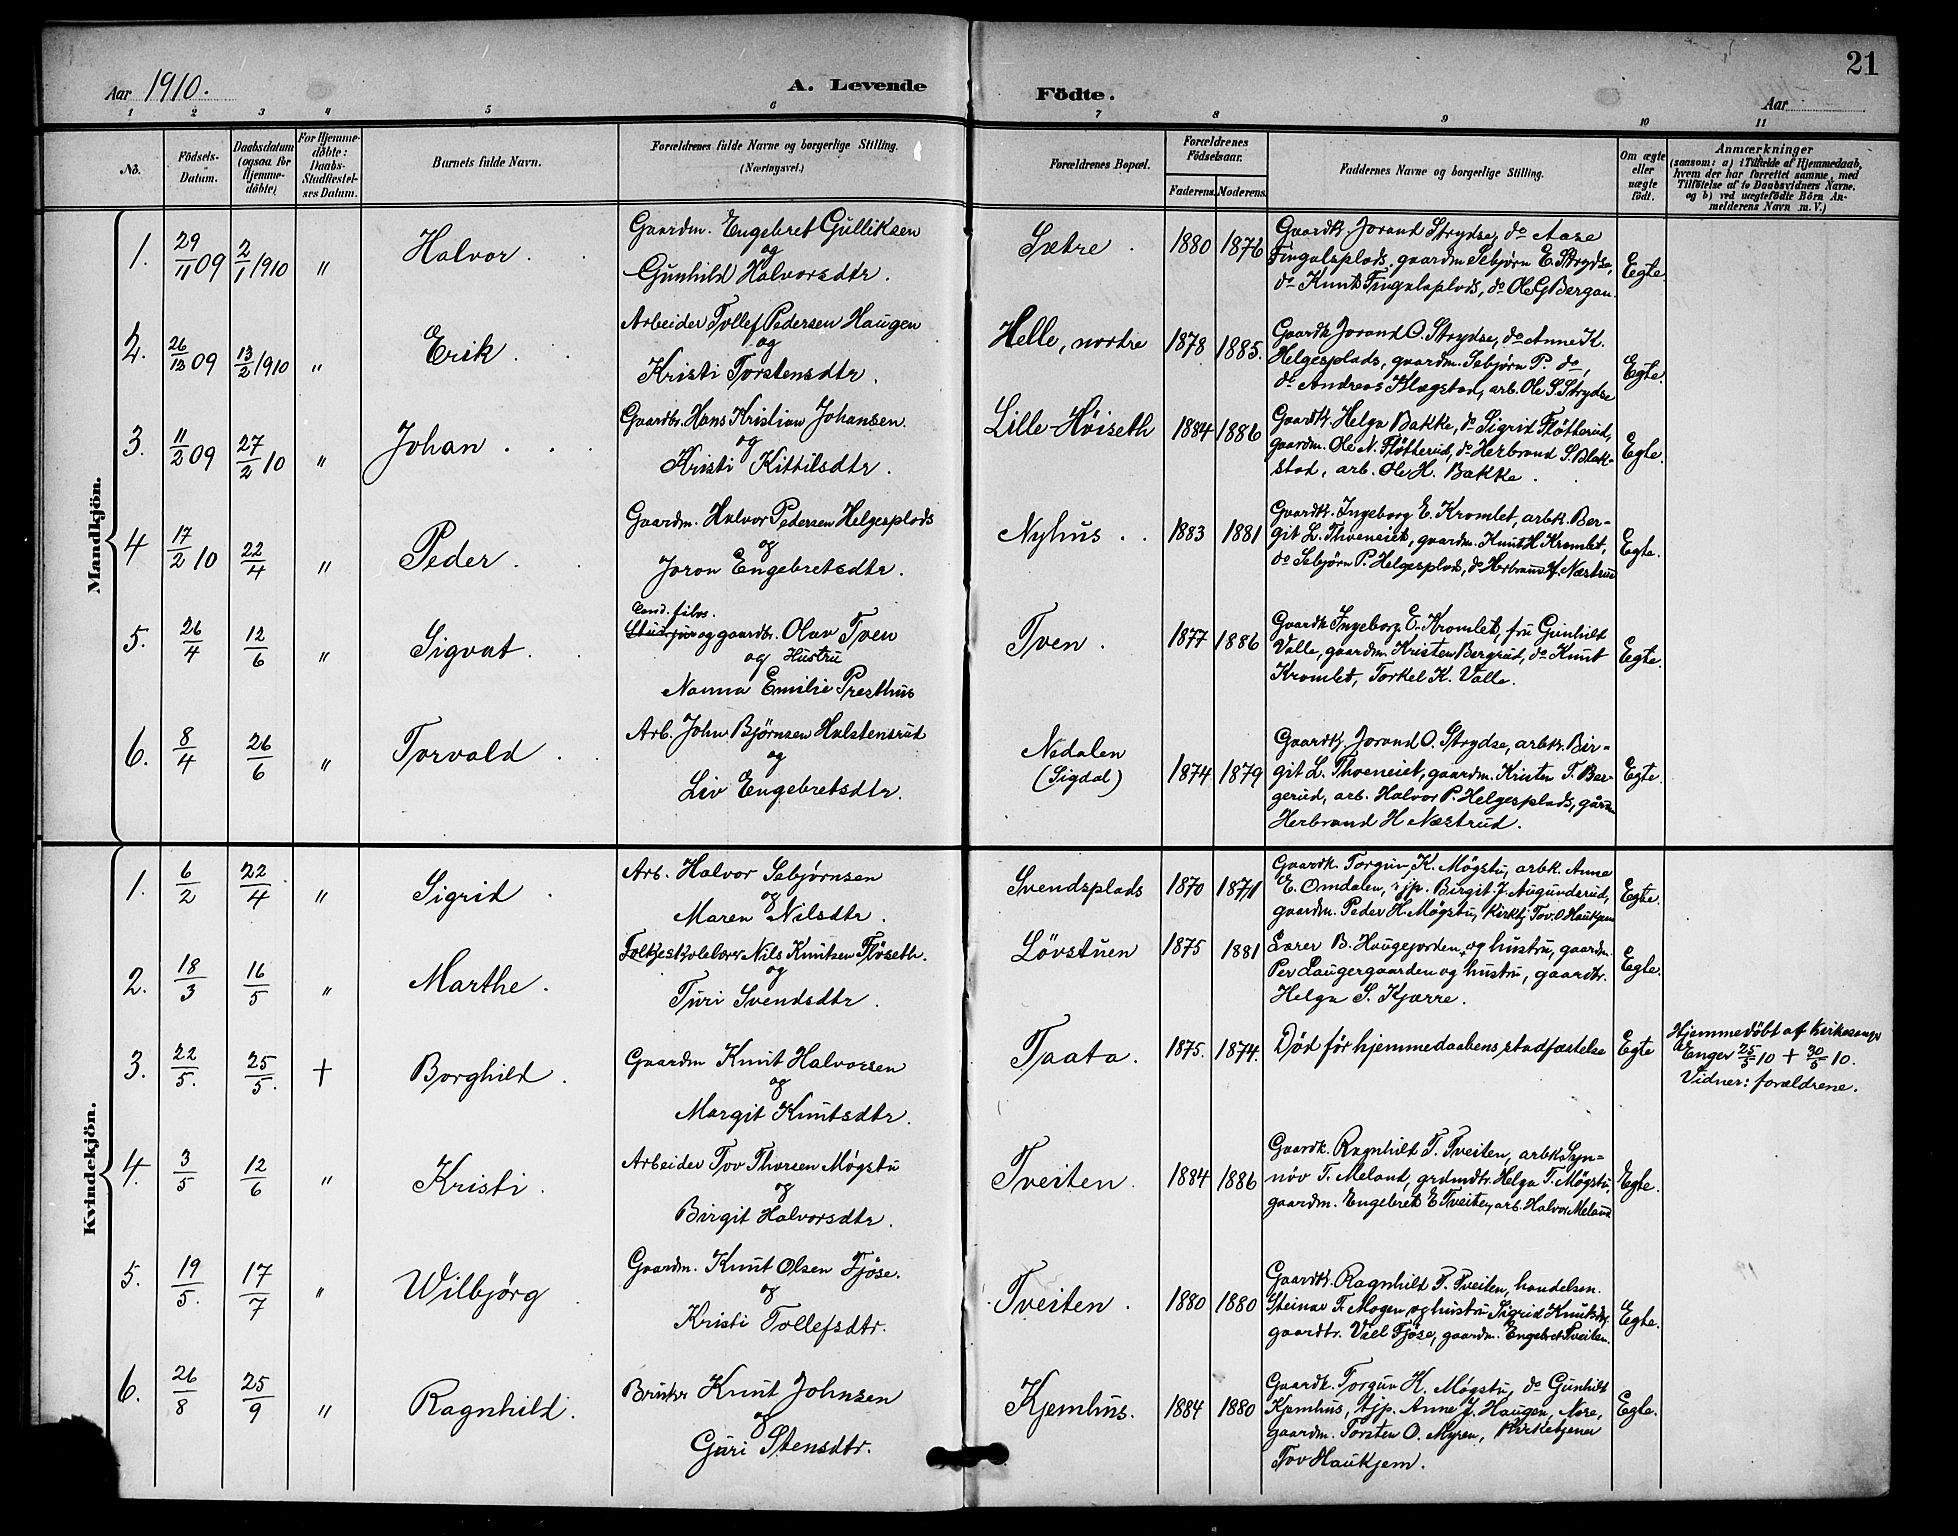 21
Aar 1910.
A. Levende
Födte.
Aar
1 2 3 4 5 6 7 8 9 10 11
No.
Födsels-
Datum.
Daabsdatum
(ogsaa for
Hjemme-
döbte).
For Hjemme-
döbte:
Daabs-
Stadfæstel-
ses Datum.
Barnets fulde Navn.
Forældrenes fulde Navne og borgerlige Stilling.
(Næringsvei.)
Forældrenes Bopæl.
Forældrenes
Födselsaar.
Faderens. Moderens.
Faddernes Navne og borgerlige Stilling.
Om ægte
eller
uægte
födt.
Anmærkninger
(saasom: a) i Tilfælde af Hjemmedaab,
hvem der har forrettet samme, med
Tilföielse af to Daabsvidners Navne.
og b) ved uægtefödte Börn An-
melderens Navn m. V.)
Mandkjön.
1. 29/11 09 2/1 1910 " Halvor.
Gaardm. Engebret Gulliksen
og
Gunhild Halvorsdtr.
Sætre. 1880 1876
Gaardk. Jorand Strydse, do Aase
Fingalsplads, gaardm Sebjørn E. Strydse,
do Knut Fingalsplads, do Ole G Bergan.
Egte.
2. 26/12 09 13/2 1910 " Erik.
Arbeider Tollef Pedersen Haugen
og
Kristi Torstensdtr.
Helle, nordre 1878 1885.
Gaardk Jorand O. Strydse, do Anne K.
Helgesplads, gaardm. Sebjørn P. do,
do Andreas Klegstad, arb. Ole S. Strydse
Egte.
3. 11/2 09 27/2 10 " Johan.
Gaardbr. Hans Kristian Johansen
og
Kristi Kittilsdtr.
Lille-Höiseth 1884 1886
Gaardk. Helga Bakke, do Sigrid Fløtterud,
gaardm. Ole N. Fløtterud, do Herbrand S. Blak-
stad, arb. Ole H. Bakke.
Egte.
4 17/2 10 22/4 " Peder.
Gaardm. Halvor Pedersen Helgesplads
og
Joron Engebretsdtr.
Nyhus. 1883 1881
Gaardk. Ingeborg E. Kromlet, arbk. Ber-
git L. Thveneiet, gaardm. Knut H Kromlet,
do Sebjørn P. Helgesplads, do Herbrand H. Næstrud
Egte.
5. 26/4 12/6 " Sigvat.
Cand. filos.
Stud. jur og gaardbr. Olav Tven
og Hustru
Nanna Emilie Presthus
Tven. 1877 1886
Gaardk Ingeborg E. Kromlet, fru Gunhild
Valle, gaardm. Kristen Bergrud, do Knut
Kromlet, Torkel K. Valle.
Egte.
6. 8/4 26/6 " Torvald.
Arb. John Bjørnsen Halstensrud
og
Liv Engebretsdtr.
Nedalen
(Sigdal) 1874 1879
Gaardk. Jorand O. Strydse, arbk. Bir-
git L. Thveneiet, gaardm. Kristen T. Ber-
gerud, arb. Halvor P. Helgesplads, gårdm
Herbrand H Næstrud.
Egte
Kvindekjön.
1. 6/2 22/4 " Sigrid.
Arb. Halvor Sebjørnsen
og
Maren Nilsdtr.
Svendsplads 1870 1871
Gaardk. Torgun K. Møgstu, arbk. Anne
E. Omdalen, tjp. Birgit J. Augunderud,
gaardm. Peder H. Møgstu, Kirketj Tov. O. Haukjem
Egte.
2. 18/3 16/5 " Marthe.
Folkeskolelærer Nils Knutsen Flöseth.
og
Turi Svendsdtr.
Lövstuen 1875 1881
Lærer B. Haugejorden og hustru, gaardm.
Per Laugergaarden og hustru, gaardtr.
Helga S. Kjærre.
Egte.
3. 22/5. 25/5. + Borghild.
Gaardm Knut Halvorsen
og
Margit Knutsdtr.
Taata. 1875. 1874.
Död för hjemmedaabens stadfæstelse
Egte
Hjemmedöbt af kirkesanger
Enger 25/5 10 + 30/5 10.
Vidner: forældrene.
4. 3/5 12/6 " Kristi.
Arbeider Tov Thorsen Møgstu
og
Birgit Halvorsdtr.
Tveiten. 1884 1886
Gaardk. Ragnhild T. Tveiten, arbk Syn-
növ T. Meland, grdmdtr. Helga T. Møgstu,
gaardm. Engebret E Tveiten, arb. Halvor Meland
Egte.
5. 19/5. 17/7 " Wilbjörg
Gaardm. Knut Olsen Fjöse.
og
Kristi Tollefsdtr.
Tveiten. 1880 1880
Gaardk. Ragnhild T. Tveiten, handelsm.
Steinar T. Mogen og hustru Sigrid Knutsdtr,
gaardtr. Viel Fjöse, gaardm. Engebret Tveiten.
Egte.
6. 26/8 25/9 " Ragnhild.
Bruker Knut Johnsen
og
Guri Stensdtr.
Kjemhus. 1884 1880
Gaardk. Torgun K. Møgstu, do Gunhild
Kjemhus, tjp. Anne J. Haugen, Nore,
gaardm. Torsten O. Myren, Kirketjener
Tov Haukjem.
Egte.